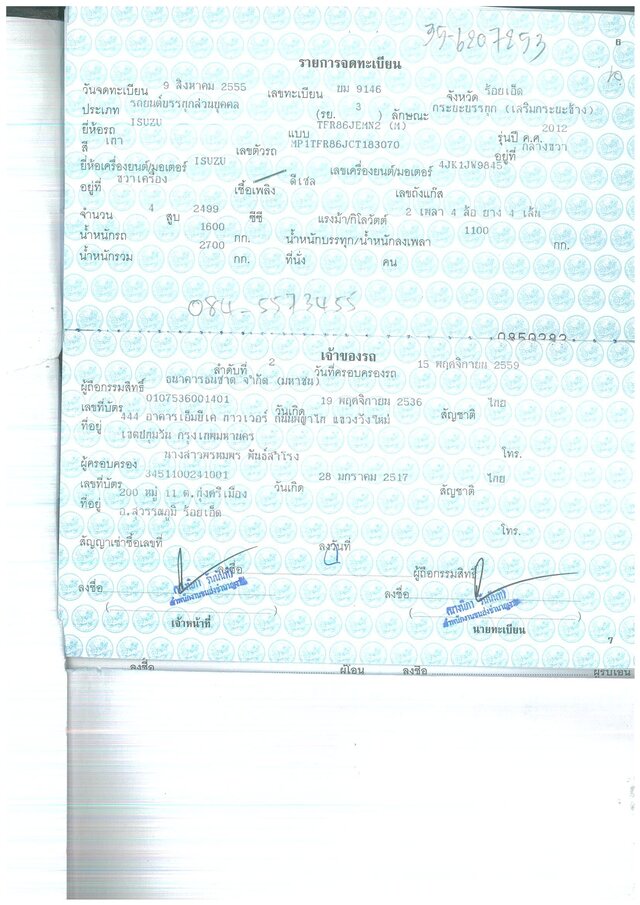 35-6207293
6
รายการจดทะเบียน
วันจดทะเบียน 9 สิงหาคม 2555 เลขทะเบียน ยม 9146 จังหวัด ร้อยเอ็ด
ประเภท รถยนต์บรรทุกส่วนบุคคล (รย. 3 ) ลักษณะ กระบะบรรทุก (เสริมกระบะข้าง)
ยี่ห้อรถ ISUZU แบบ TFR86JEMN2 (M) รุ่นปี ค.ศ. 2012
สี เทา เลขตัวรถ MP1TFR86JCT183070 อยู่ที่ กลางขวา
ยี่ห้อเครื่องยนต์/มอเตอร์ ISUZU เลขเครื่องยนต์/มอเตอร์ 4JK1JW9845
อยู่ที่ ขวาเครื่อง เชื้อเพลิง ดีเซล เลขถังแก๊ส
จำนวน 4 สูบ 2499 ซีซี แรงม้า/กิโลวัตต์ 2 เพลา 4 ล้อ ยาง 4 เส้น
น้ำหนักรถ 1600 กก. น้ำหนักบรรทุก/น้ำหนักลงเพลา 1100 กก.
น้ำหนักรวม 2700 กก. ที่นั่ง คน
084-5573455
เจ้าของรถ
ลำดับที่ 2 วันที่ครอบครองรถ 15 พฤศจิกายน 2559
ผู้ถือกรรมสิทธิ์ ธนาคารธนชาต จำกัด (มหาชน)
เลขที่บัตร 0107536001401 วันเกิด 19 พฤศจิกายน 2536 สัญชาติ ไทย
ที่อยู่ 444 อาคารเอ็มบีเค ทาวเวอร์ ถนนพญาไท แขวงวังใหม่
เขตปทุมวัน กรุงเทพมหานคร โทร.
ผู้ครอบครอง นางสาวพรมพร พันธ์สำโรง
เลขที่บัตร 3451100241001 วันเกิด 28 มกราคม 2517 สัญชาติ ไทย
ที่อยู่ 200 หมู่ 11 ต.ทุ่งศรีเมือง
อ.สุวรรณภูมิ ร้อยเอ็ด โทร.
สัญญาเช่าซื้อเลขที่ ลงวันที่
ผู้ถือกรรมสิทธิ์
ลงชื่อ ลงชื่อ
เจ้าหน้าที่ นายทะเบียน
7
ลงชื่อ ผู้โอน ลงชื่อ ผู้รับโอน